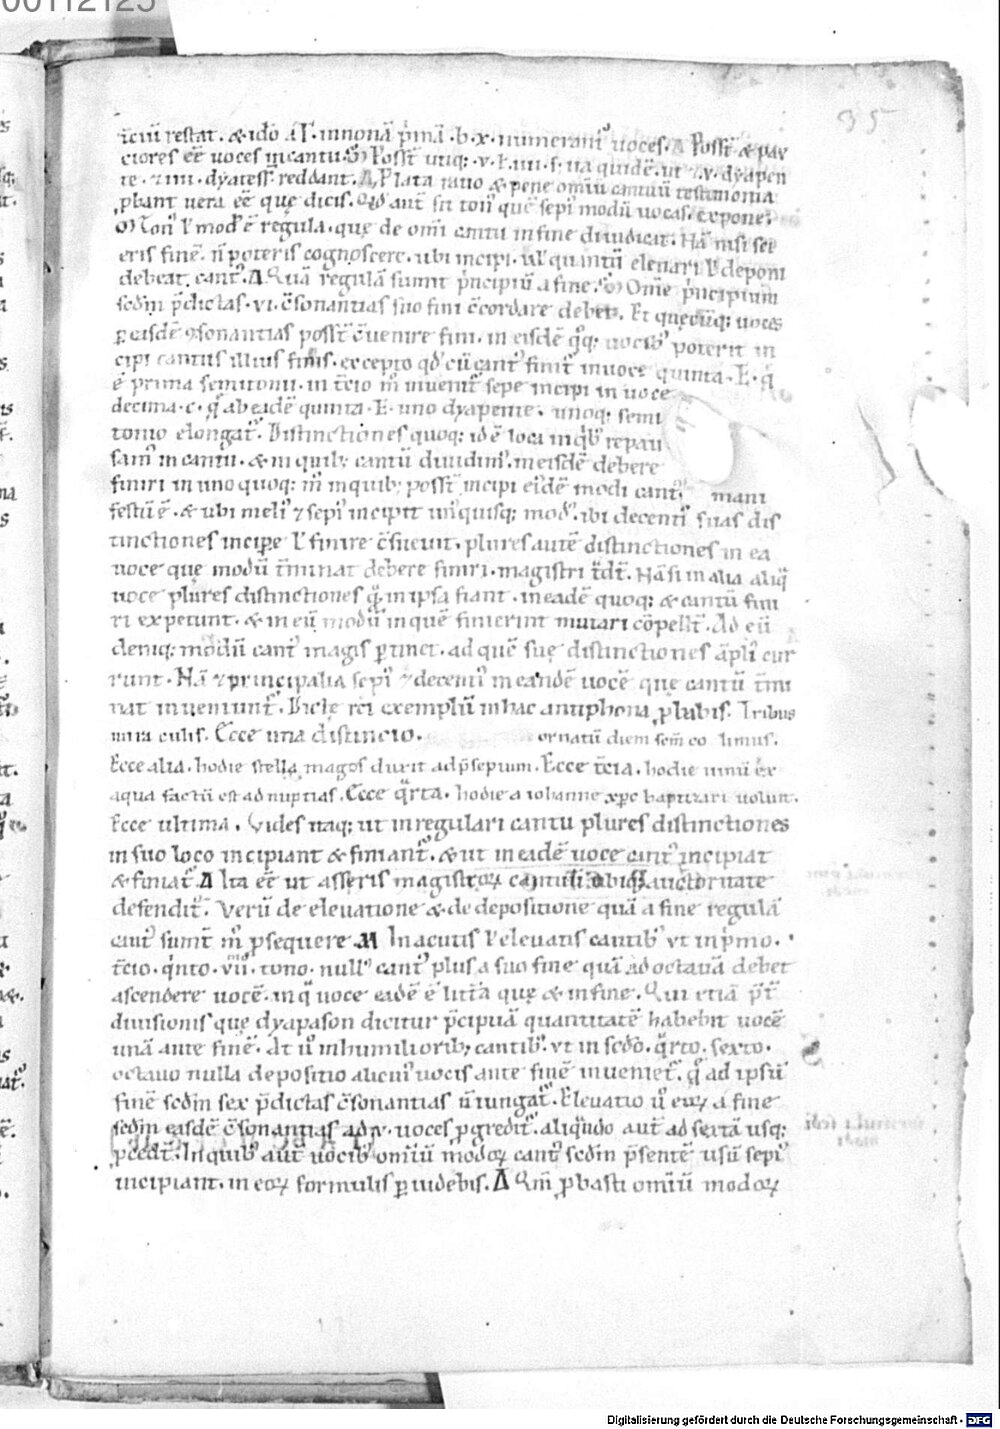 00112125
35
t̄ciū restat. & idō
ciores eē uoces in cantu. M Posst̄ utiq;
te. & iiii. dyatess̄ reddant. Δ Plata
ꝓbant uera eē quę dicis. Qd̄ aut̄ sit ton᾽ quē sepi᾽ modū uocas. expone.
M Ton᾽ ł mod᾽ ē regula. quę de om̄i cantu in fine diiudicat. Nā nisi sci
eris finē. n̄ poteris cognoscere. ubi incipi. ul᾽ quantū eleuari ł deponi
debeat cant᾽. Δ Quā regulā sumit p̄ncipiū a fine. M Om̄e p̄ncipium
scdm̄ p̄dictas. vi. c̄sonantias suo fini c̄cordare debet. Et quęcūq; uoces
ꝑ easdē ꝯsonantias posst̄ c̄uenire fini. in eisdē q̊q; uocib᾽ poterit in
cipi cantus illius finis. excepto qd̄ cū cant᾽ finit᾽ in uoce quinta. E. q̄
ē prima semitonii. in t̄cio m̄ inuenit᾽ sepe incipi in uoce
decima. c. q̄ ab eadē quinta. E. uno dyapente. unoq; semi
tonio elongat᾽. Distinctiones quoq; id ē loca in q̇b᾽ repau
sam᾽ in cantu. & in quib; cantū diuidim᾽. in eisdē debere
finiri in uno quoq; m̄ in quib; posst̄ incipi eidē modi cant᾽. mani
festū ē. & ubi meli᾽ & sepi᾽ incipit un᾽quisq; mod᾽. ibi decenti᾽ suas dis
tinctiones incipe ł finire c̄sueuit. plures autē distinctiones in ea
uoce quę modū t̄minat debere finiri. magistri t̄dt̄. Nā si in alia aliq̄
uoce plures distinctiones q̄ in ipsa fiant. in eadē quoq; & cantū fini
ri expetunt. & in eū modū in quē finierint mutari cōpellt̄. Ad eū
deniq; modū cant᾽ magis ꝑtinet. ad quē suę distinctiones āpli᾽ cur
runt. Nā & principalia sepi᾽ & decenti᾽ in eandē uocē quę cantū t̄mi
nat inueniunt᾽. Dictę rei exemplū in hac antiphona ꝓlabis. Tribus
mira culis. Ecce una distinctio. ornatū diem sem̄ co limus.
Ecce alia. hodie stella magos duxit ad p̄sepium. Ecce t̄cia. hodie uinū ex
aqua factū est ad nuptias. Ecce q̄rta. hodie a iohanne xp̄c baptizari uoluit.
Ecce ultima. Vides itaq; ut in regulari cantu plures distinctiones
in suo loco incipiant & finiant᾽. & ut in eadē uoce cant᾽ incipiat
& finiat᾽. Δ Ita eē ut asseris magistroꝝ
defendit᾽. Verū de eleuatione & de depositione quā a fine regulā
cant᾽ sumt̄ m̄ ꝓsequere. M In acutis ł eleuatis cantib᾽ ut in p̄mo.
t̄cio. q̇nto. vii. tono. null᾽ cant᾽ plus a suo fine quā ad octauā debet
ascendere uocē. in q̄ uoce eadē ē litt̄a quę & in fine. Qui etiā p̄t̄
diuisionis quę dyapason dicitur p̄cipuā quantitatē habebit uocē
unā ante finē. At ū in humilioribꝫ cantib᾽. ut in scdo. q̄rto. sexto.
octauo nulla depositio alicui᾽ uocis ante finē inueniet᾽. q̄ ad ipsū
finē scdm̄ sex p̄dictas c̄sonantias n̄ iungat᾽. Eleuatio ū eoꝝ a fine
scdm̄ easdē c̄sonantias ad v. uoces ꝓgredit᾽. aliq̄ndo aut̄ ad sextā usq;
ꝓcedt̄. In quib᾽ aut̄ uocib᾽ om̄iū modoꝝ cant᾽ scdm̄ p̄sentē usū sepi᾽
incipiant. in eoꝝ formulis ꝑuidebis. Δ Qm̄ ꝓbasti om̄iū modoꝝ
Digitalisierung gefördert durch die Deutsche Forschungsgemeinschaft - DFG